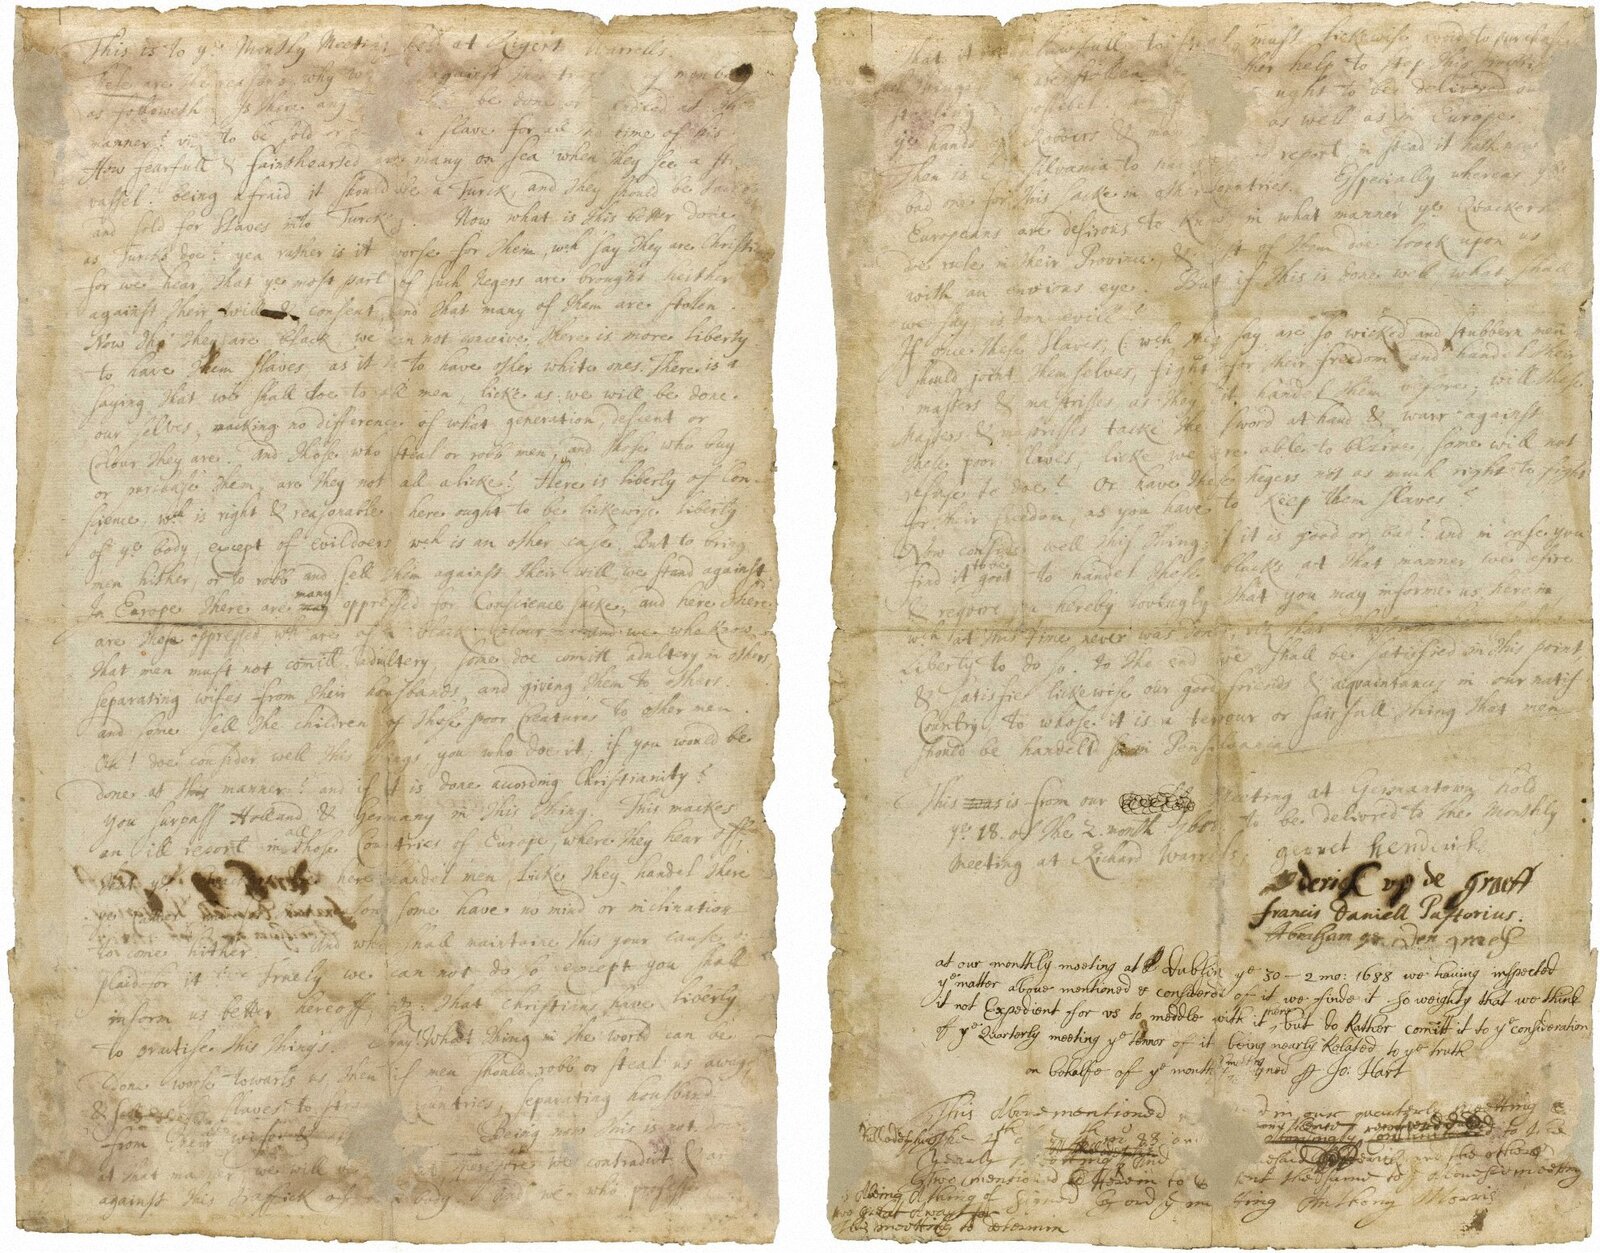 This is to ye Monthly Meeting held at Rigert Warrells.
These are the reasons why we against the traffick of men body
as followeth: Is there any be done or handled at this
manner? viz to be sold or a slave for all the time of his
How fearfull & fainthearted are many on sea when they see a str
vassel. being afraid it should be a Turck, and they should be tacken
and sold for Slaves into Turckey. Now what is this better done
as Turcks doe? yea rather is it worse for them, wch say they are Christians
for we hear, that ye most part of such Negers are brought heither
against their will & consent, and that many of them are stolen.
Now tho they are black, we can not conceive there is more liberty
to have them slaves, as it is to have other white ones. There is a
saying that we shall doe to all men, licke as we will be done
our selves, macking no difference of what generation, descent or
Colour they are. And those who steal or robb men, and those who buy
or purchase them, are they not all alicke? Here is liberty of Con-
science, wch is right & reasonable, here ought to be lickewise liberty
of ye body, except of evildoers, wch is an other case. But to bring
men hither, or to robb and sell them against their will, we stand against.
In Europe there are many oppressed for Conscience sacke; and here there
are those oppressed wch are of a black Colour. and we who know
that men must not comitt adultery, some doe comitt adultery in others,
separating wifes from their housbands, and giving them to others
and some sell the children of those poor Creatures to other men.
Oh! doe consider well this things, you who doe it, if you would be
done at this manner? and if it is done according Christianity?
You surpass Holland & Germany in this thing. This mackes
an ill report in all those Countries of Europe, where they hear off,
that ye here handel men, licke they handel there
ye some have no mind or inclination
to come hither. And who shall maintaine this your cause or
plaid for it! Truely we can not do so except you shall
inform us better hereoff, viz: that christians have liberty
to practise this things. Pray! What thing in the world can be
done worse towarts us then if men should robb or steal us away
& sell us for slaves to strange Countries, separating housband
from their wife &
Being now this is not done
at that manner we will be therefore we contradict & are
against this traffick of men body. And we who profess
that it is not lawfull to steal, must lickewise avoid to purchase
such things as are stollen but rather help to stop this robbing
and stealing if possibel and ought to be delivred out
ye hands of Robbers & mad as well as in Europe.
Then is Pensilvania to have a good report, in stead it hath now
bad one for this sacke in other Countries. Especially whereas ye
Europeans are desirous to know in what manner ye Quackers
doe rule in their Province, & most of them doe loock upon us
with an envious eye. But if this is done well, what shall
we say, is don evill?
If once these slaves, (wch they say are so wicked and stubbern men)
should joint themselves, fight for their freedom and handel their
masters & mastrisses as they did handel them before; will these
masters & mastrisses tacke the sword at hand & warr against
these poor slaves, licke we are able to belive, some will not
refuse to doe? Or have these Negers not as much right to fight
for their freedom, as you have to keep them slaves?
Now consider well this thing, if it is good or bad? and in case you
find it to be good to handel these blacks at that manner, we desire
& require you hereby lovingly that you may informe us herein,
wch at this time never was done, viz that
Liberty to do so. to the end we shall be satisfied in this point,
& satisfie lickewise our good friends & acquaintances in our natif
Country, to whose it is a terrour or fairfull thing that men
should be handeld so in Pensilvania
This was is from our meeting at Germantown hold
ye 18. of the 2. month 1688. to be delivred to the Monthly
Meeting at Richard Warrels.
gerret hendericks
derick op de graeff
Francis Daniell Pastorius.
Abraham op Den graeff
at our monthly meeting at Dublin ye 30 – 2 mo: 1688 we having inspected
ye matter above mentioned & considered of it we finde it so weighty that we think
it not Expedient for us to meddle with it here, but do Rather comitt it to ye consideration
of ye Quarterly meeting ye tennor of it being nearly Related to ye truth
on behalfe of ye monthly meeting signed P Jo: Hart
This above mentioned in our quarterly meeting
Philadelphia the 4th of
yearly
above mentioned the same to
being a thing of
Signed by order of ye meeting Anthony Morris
too great a waight for
this meeting to determin